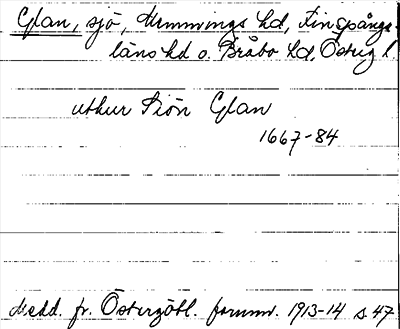 Glan, sjö, Memmings hd, Finspånga
läns hd o. Bråbo hd, Östrg l.
uthur Siön Glan
1667-84
Medd. fr. Östergötl. fornm. 1913-14 s 47